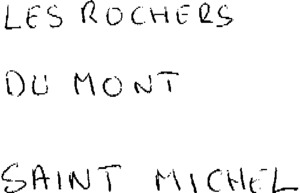 LES ROCHERS
DU MONT
SAINT MICHEL